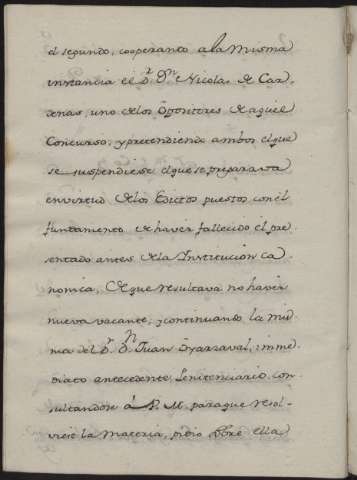 el segundo, cooperando a la misma
instancia el D.r D.n Nicolas de Car
denas, uno de los Opositores de aquel
Concurso, y pretendiendo ambos el que
se suspendiese el que se preparava
en virtud de los Edictos puestos con el
fundamento de haver fallecido el pre
sentado antes de la Institucion ca
nonica, de que resultava no haver
nueva vacante, y continuando la mis
ma del D.r D.n Juan Oyarzaval, imme
diato antecedente Penitenciario con
sultandose á V. M. para que resol
viese la materia, pidio sobre ella